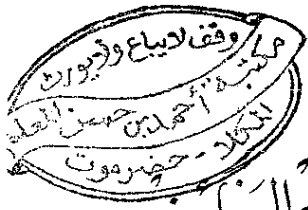 وقف لا يباع ولا يورث
مكتبة أحمد بن حسن العطاس
المكلا - حضرموت